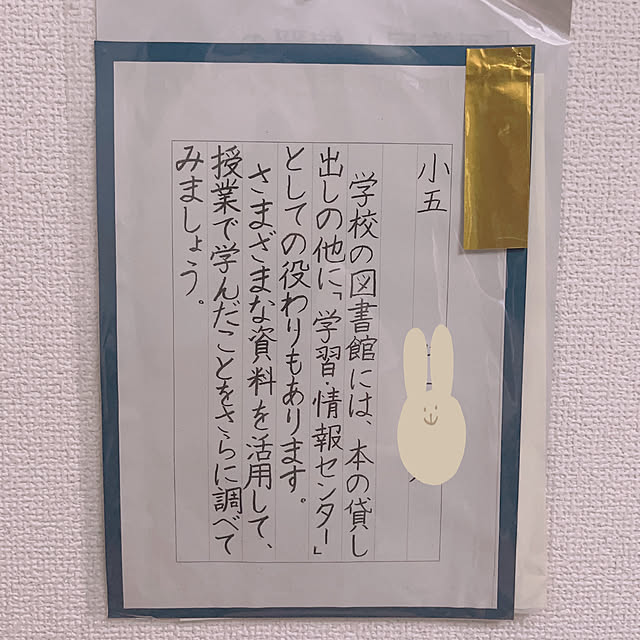 小五
学校の図書館には、本の貸し
出しの他に「学習・情報センター」
としての役わりもあります。
さまざまな資料を活用して、
授業で学んだことをさらに調べて
みましょう。